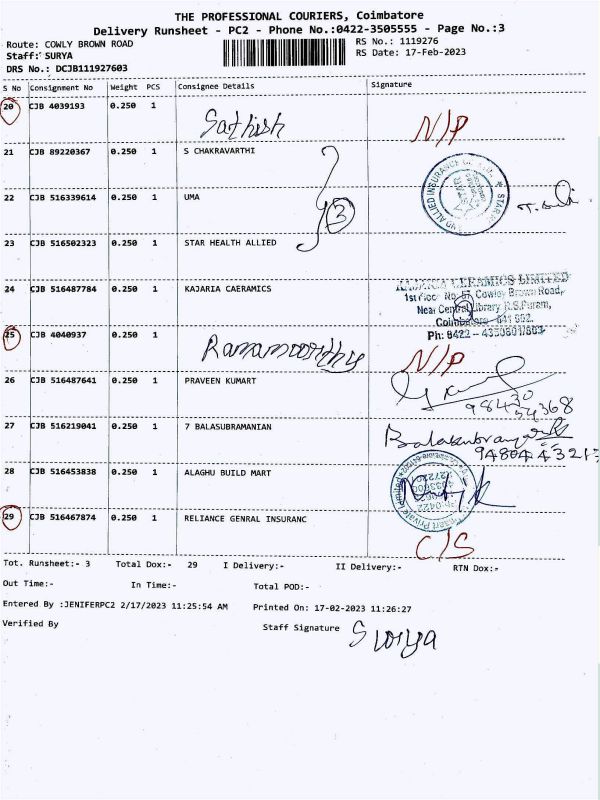 THE PROFESSIONAL COURIERS, Coimbatore
Delivery Runsheet - PC2 - Phone No.:0422-3505555 - Page No.:3
Route: COWLY BROWN ROAD
RS No.: 1119276
Staff: SURYA
RS Date: 17-Feb-2023
DRS No.: DCJB111927603
S No Consignment No Weight PCS Consignee Details Signature
20 CJB 4039193 0.250 1 Sathish N/P
21 CJB 89220367 0.250 1 S CHAKRAVARTHI
22 CJB 516339614 0.250 1 UMA 3
AND ALLIED INSURANCE STAR
23 CJB 516502323 0.250 1 STAR HEALTH ALLIED
24 CJB 516487784 0.250 1 KAJARIA CAERAMICS
KAJARIA CERAMICS LIMITED
1st Floor No. 57, Cowley Brown Road,
Near Central Library R.S.Puram,
Coimbatore - 641 002.
Ph: 0422 - 4350801/803
25 CJB 4040937 0.250 1 Ramamoorthy N/P
26 CJB 516487641 0.250 1 PRAVEEN KUMART
98430
54368
27 CJB 516219041 0.250 1 7 BALASUBRAMANIAN
94804 43213
28 CJB 516453838 0.250 1 ALAGHU BUILD MART
29 CJB 516467874 0.250 1 RELIANCE GENRAL INSURANC C/S
Tot. Runsheet:- 3 Total Dox:- 29 I Delivery:- II Delivery:- RTN Dox:-
Out Time:- In Time:- Total POD:-
Entered By :JENIFERPC2 2/17/2023 11:25:54 AM Printed On: 17-02-2023 11:26:27
Verified By Staff Signature Surya